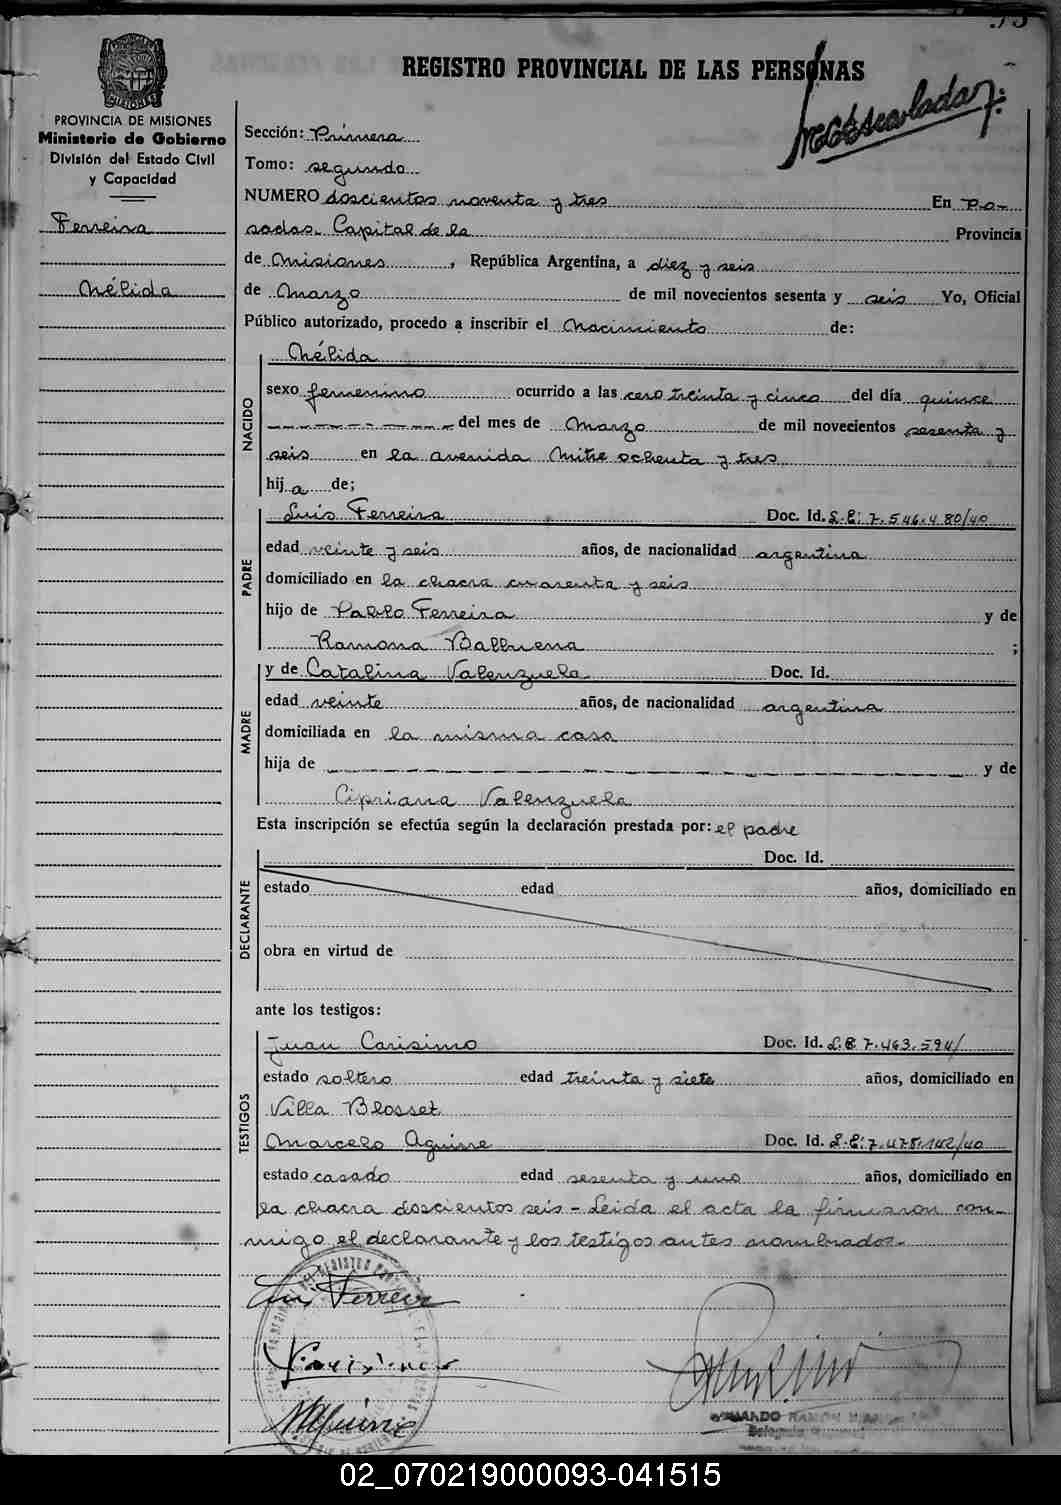 REGISTRO PROVINCIAL DE LAS PERSONAS
PROVINCIA DE MISIONES
Ministerio de Gobierno
División del Estado Civil
y Capacidad
Ferreira
Nélida
Sección: Primera
Tomo: segundo
NUMERO doscientos noventa y tres En Po-
sadas. Capital de la Provincia
de Misiones, República Argentina, a diez y seis
de Marzo de mil novecientos sesenta y seis Yo, Oficial
Público autorizado, procedo a inscribir el Nacimiento de:
NACIDO
Nélida
sexo femenino ocurrido a las cero treinta y cinco del día quince
del mes de Marzo de mil novecientos sesenta y
seis en la avenida Mitre ochenta y tres
hija de;
PADRE
Luis Ferreira Doc. Id. L.E: 7.546.480/40
edad veinte y seis años, de nacionalidad argentina
domiciliado en la chacra cuarenta y seis
hijo de Pablo Ferreira y de
Ramona Balbuena ;
MADRE
y de Catalina Valenzuela Doc. Id.
edad veinte años, de nacionalidad argentina
domiciliada en la misma casa
hija de y de
Cipriana Valenzuela
Esta inscripción se efectúa según la declaración prestada por: el padre
DECLARANTE
Doc. Id.
estado edad años, domiciliado en
obra en virtud de
ante los testigos:
TESTIGOS
Juan Carisimo Doc. Id. L.E. 7.463.594/
estado soltero edad treinta y siete años, domiciliado en
Villa Blosset
Marcelo Aguirre Doc. Id. L.E: 7.478.142/40
estado casado edad sesenta y uno años, domiciliado en
la chacra doscientos seis - Leida el acta la firmaron con-
migo el declarante y los testigos antes nombrados.
Luis Ferreira
02_070219000093-041515